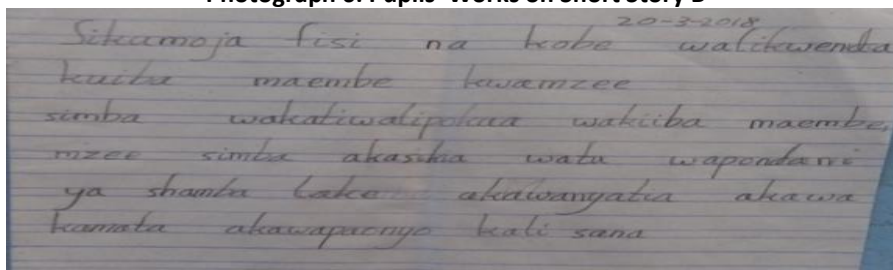 20-3-2018
Sikumoja fisi na kobe walikwenda
kuiba maembe kwamzee
simba wakatiwalipokuaa wakiiba maembe,
mzee simba akasikia watu wapondani
ya shamba lake akawanyatia akawa
kamata akawapaonyo kali sana